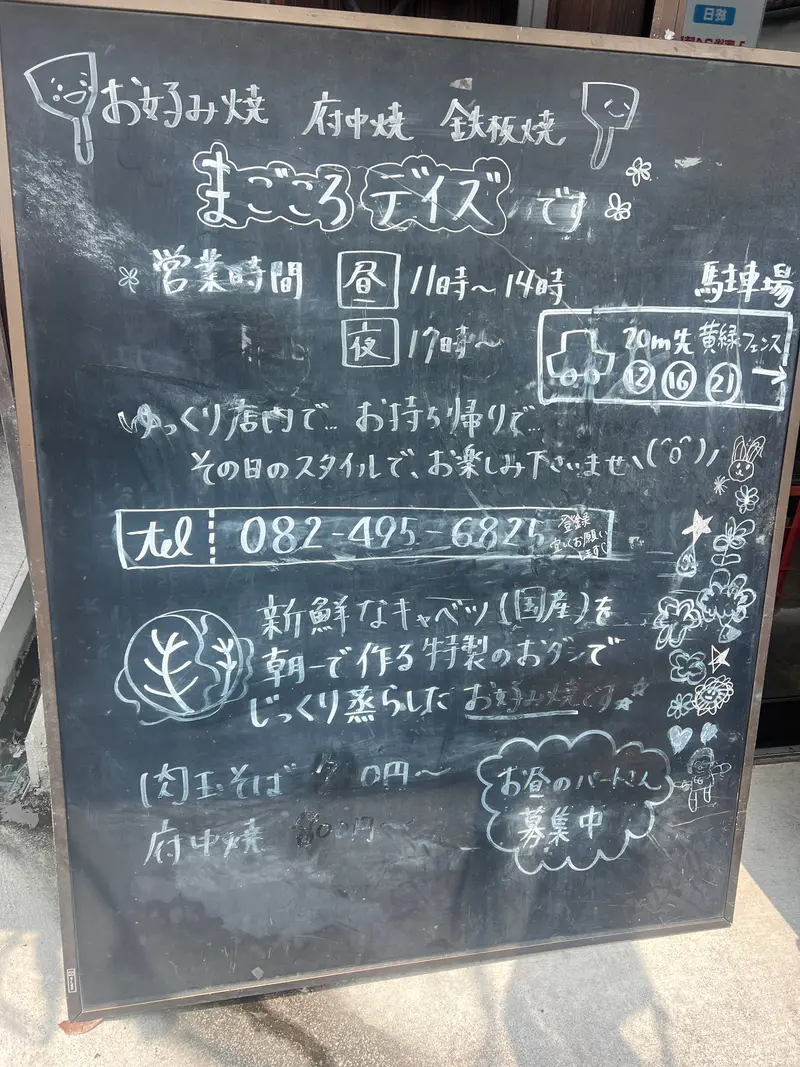 お好み焼 府中焼 鉄板焼
まごころデイズです
営業時間 昼 11時〜14時
夜 17時〜
駐車場
20m先 黄緑フェンス
⑫ ⑯ ㉑ →
ゆっくり店内で… お持ち帰りで…
その日のスタイルで、お楽しみ下さいませ\(^o^)/
tel 082-495-6825
登録
宜しくお願い
します
新鮮なキャベツ(国産)を
朝一で作る特製のおダシで
じっくり蒸らした お好み焼です☆☆
肉玉そば 0円〜
府中焼 800円〜
お昼のパートさん
募集中